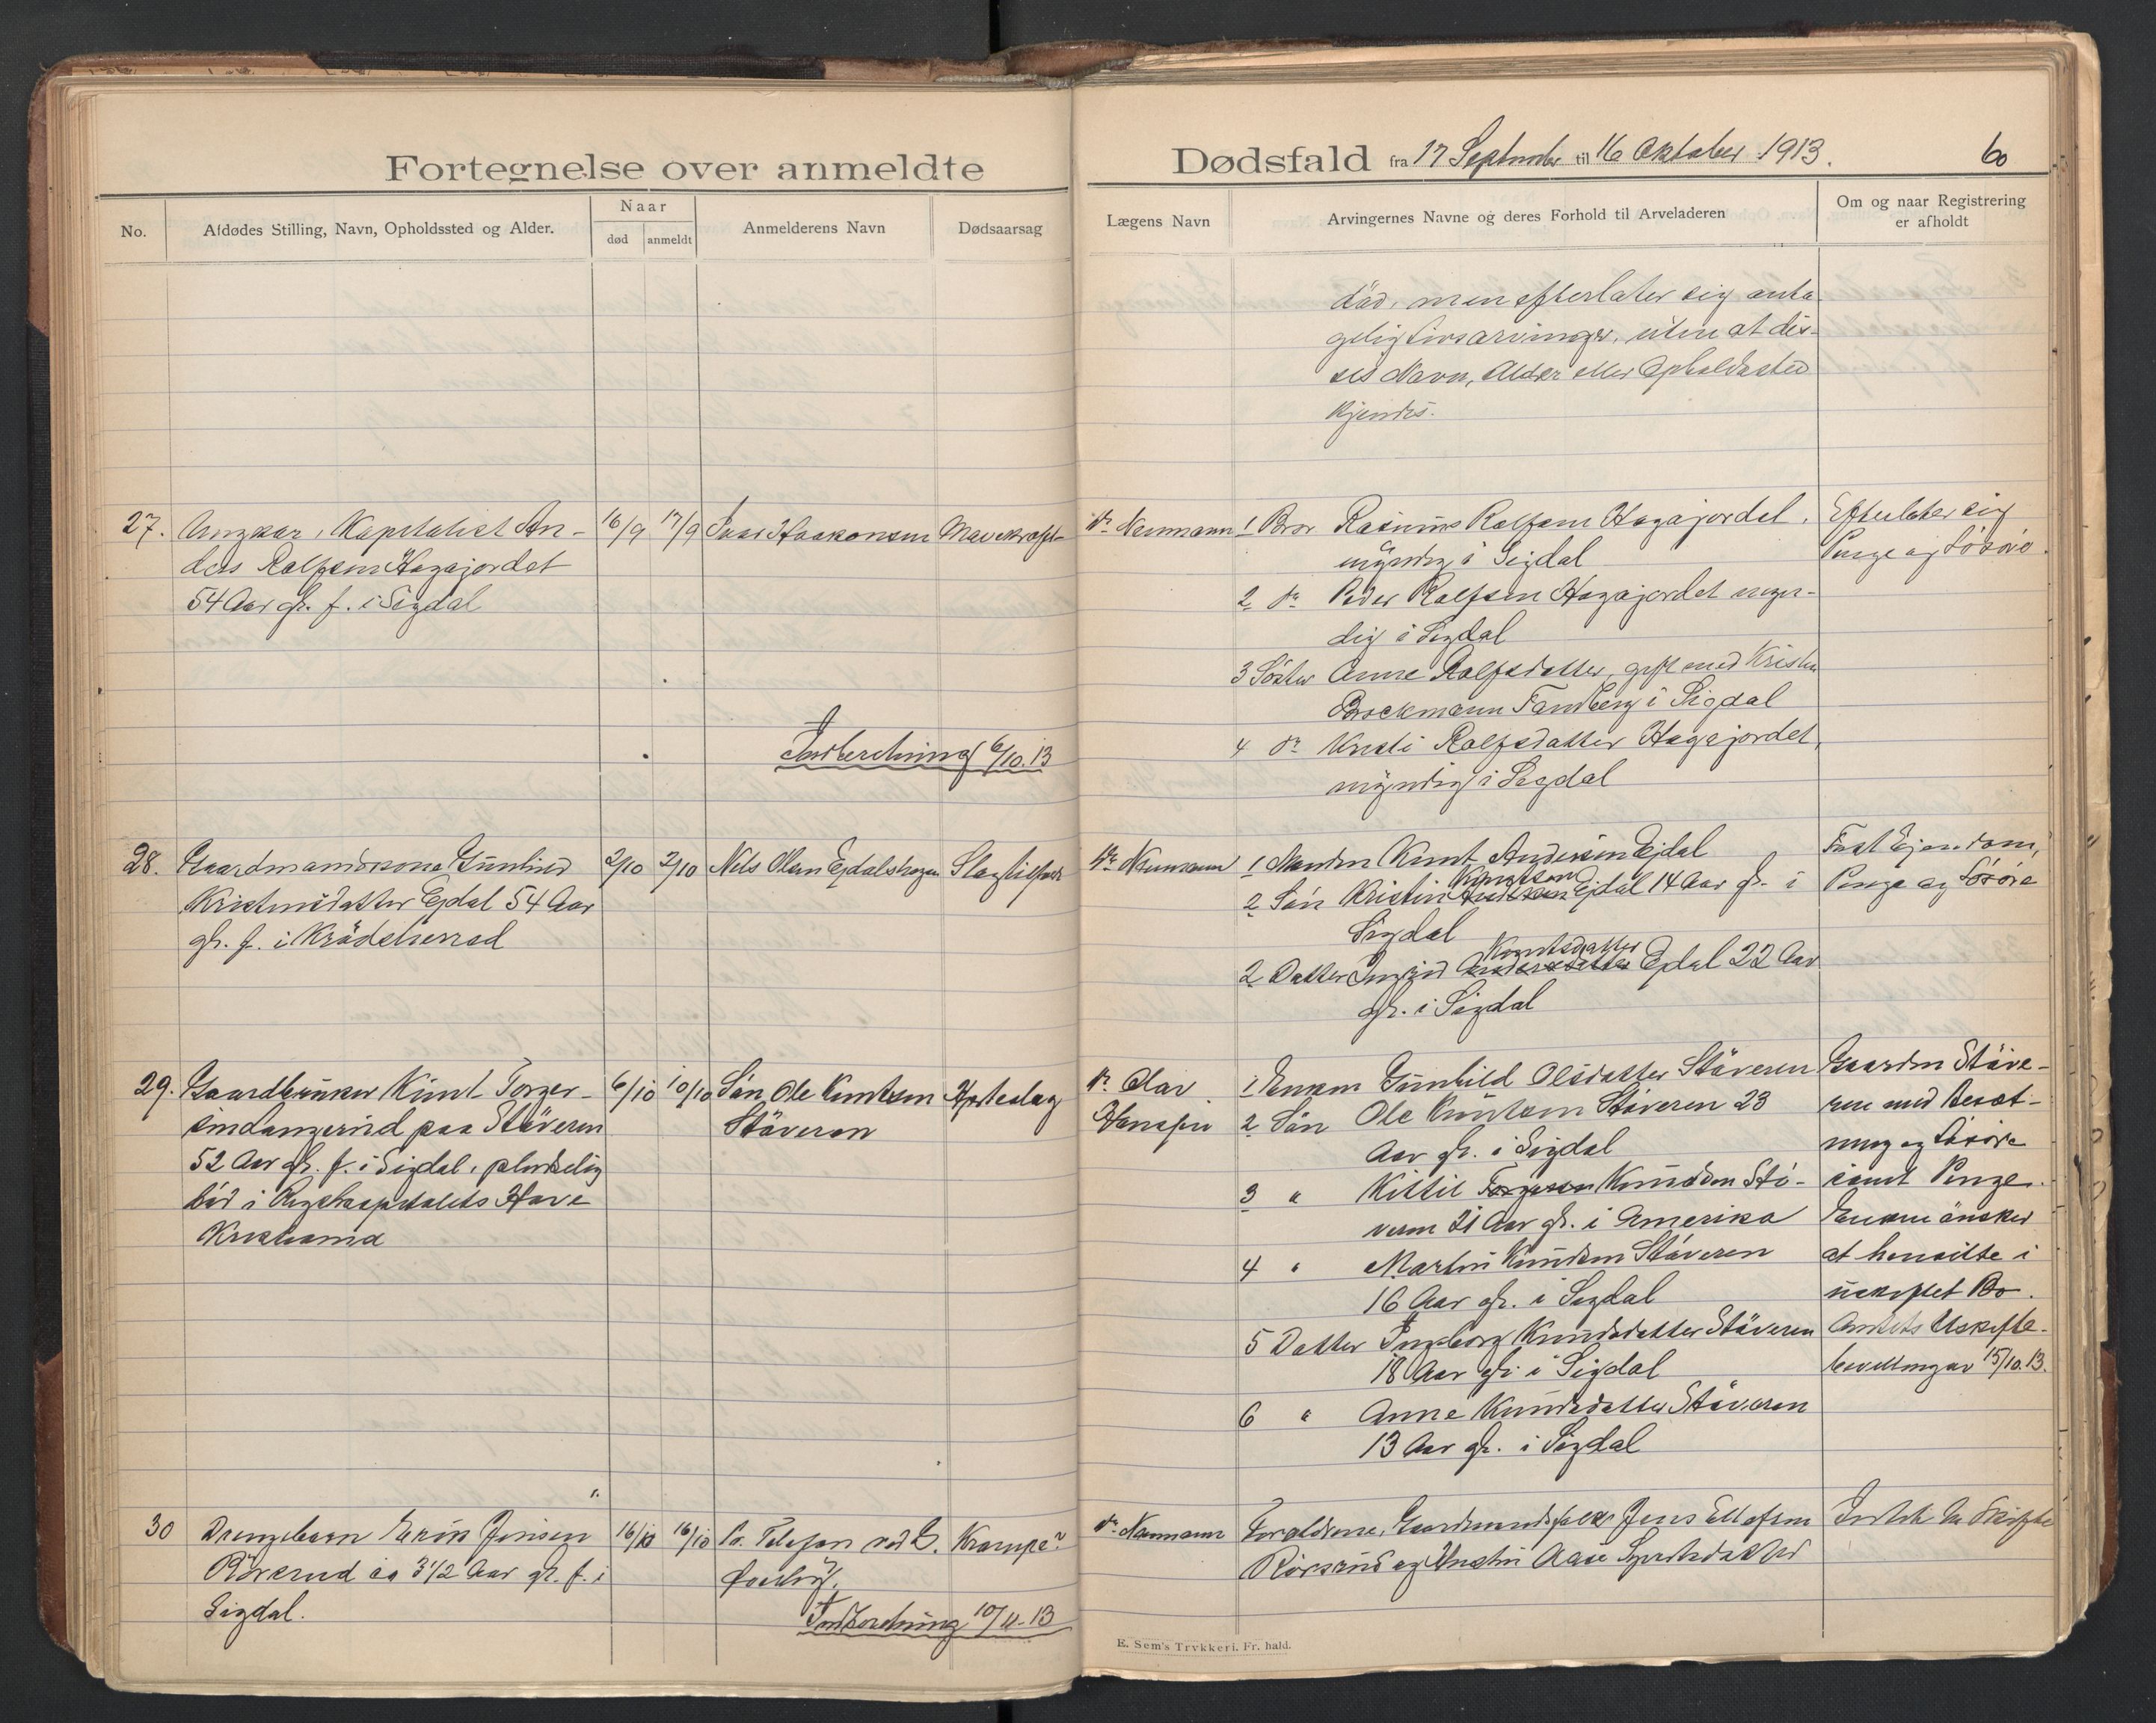 Fortegnelse over anmeldte
Dødsfald fra 17 September til 16 Oktober 1913.
60
No.
Afdødes Stilling, Navn, Opholdssted og Alder.
Naar
død
anmeldt
Anmelderens Navn
Dødsaarsag
Lægens Navn
Arvingernes Navne og deres Forhold til Arveladeren
Om og naar Registrering
er afholdt
död, men efterlater sig anta-
gelig livsarvinger, uten at dis-
ses Navn, Alder eller Opholdssted
kjendes.
27. Ungkar, Kapitalist An-
ders Rolfsen Hagajordet
54 Aar gl. f. i Sigdal
16/9 17/9
Haakonsen
Mavekræft
Dr Neumann
1 Bror Rasmus Rolfsen Hagajordet,
myndig i Sigdal
2 do Peder Rolfsen Hagajordet myn-
dig i Sigdal
3 Söster Anne Rolfsdatter, gift med Kristen
Brockmann i Sigdal
4 do Kristi Rolfsdatter Hagajordet,
myndig i Sigdal
Efterlater sig
Penge og Lösöre.
Indberetning 6/10.13
28. Gaardmandskone Gunhild
Kristensdatter Ejdal 54 Aar
gl. f. i Krödsherred
2/10 2/10
Nils Olsen Ejdalshagen
Slagtilfælde
Dr Neumann
1 Manden Knut Andersen Ejdal
2 Sön Kristin Knutsen Ejdal 14 Aar gl. i
Sigdal
2 Datter Ingrid Knutsdatter Ejdal 22 Aar
gl. i Sigdal
Fast Ejendom,
Penge og Lösöre
29. Gaardbruker Knut Torger-
sen paa Stöveren
52 Aar gl. f. i Sigdal, pludselig
död i Rigshospitalets Have
Kristiania
6/10 10/10
Sön Ole Knutsen
Stöveren
Hjerteslag
Dr. Olav
Hanssen
1 Enken Gunhild Olsdatter Stöveren
2 Sön Ole Knutsen Stöveren 23
Aar gl. i Sigdal
3 " Kittil Torgersen Knudsen Stö-
veren 21 Aar gl. i Amerika
4 " Martin Knudsen Stöveren
16 Aar gl. i Sigdal
5 Datter Ingeborg Knudsdatter Stöveren
18 Aar gl. i Sigdal
6 " Anne Knudsdatter Stöveren
13 Aar gl. i Sigdal
Gaarden Stöve-
ren med Besæt-
ning og Lösöre
samt Penge.
Enken önsker
at hensitte i
uskiftet Bo.
Amtets Uskifte-
bevilling av 15/10.13.
30 Drengebarn Jensen
Rörsrud ca 3 1/2 Aar gl. f. i
Sigdal.
16/10 16/10
Pr. Telefon ved
Krampe?
Indberetning 10/11-13
Dr Neumann
Forældrene, Gaardmandsfolk Jens Ellefsen
Rörsrud og Hustru Aase
Intet
E. Sem's Trykkeri. Fr. hald.